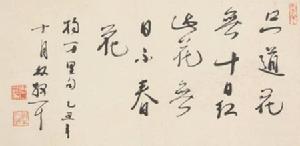 只道花
無十日紅
此花無
日不春
花
楊万里句 乙丑年
十月